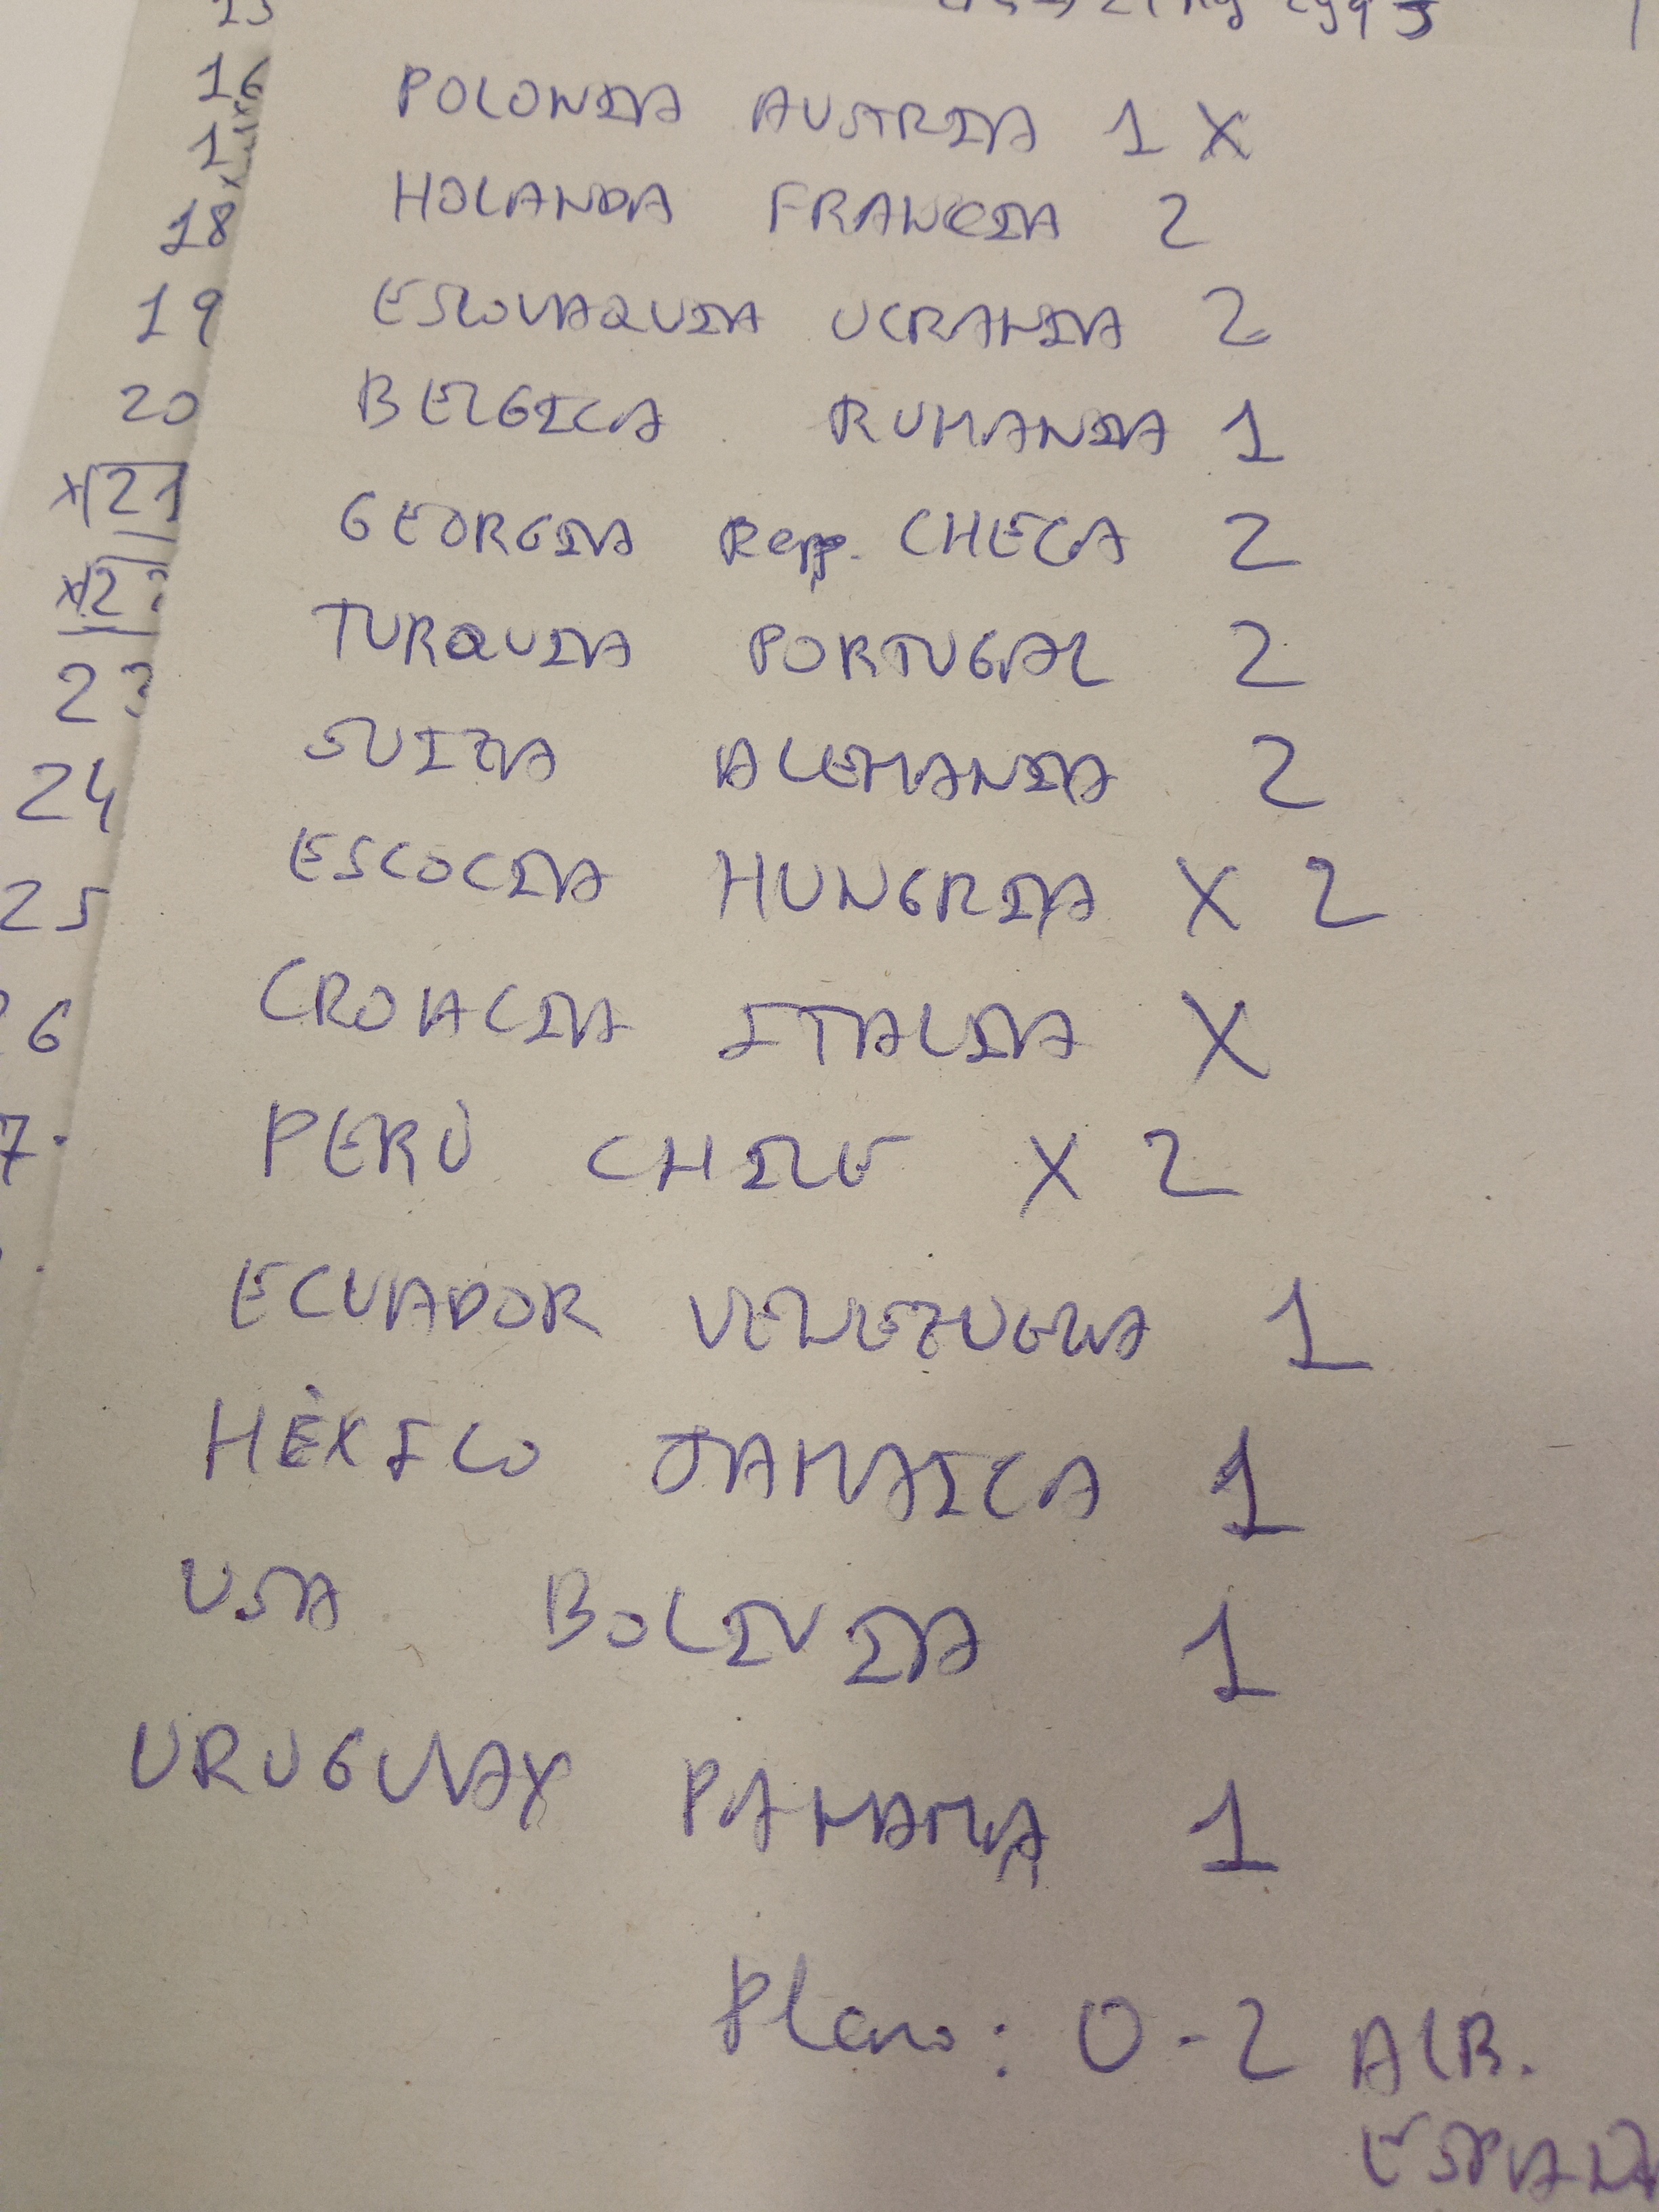 16
1
18
19
20
x 21
x 2
23
24
25
6
7.
POLONIA AUSTRIA 1 X
HOLANDA FRANCIA 2
ESLOVAQUIA UCRANIA 2
BELGICA RUMANIA 1
GEORGIA Repp. CHECA 2
TURQUIA PORTUGAL 2
SUIZA ALEMANIA 2
ESCOCIA HUNGRIA X 2
CROACIA ITALIA X
PERÚ CHILE X 2
ECUADOR VENEZUELA 1
MÉXICO JAMAICA 1
USA BOLIVIA 1
URUGUAY PANAMA 1
Pleno: 0-2 ALB.
ESPAÑA